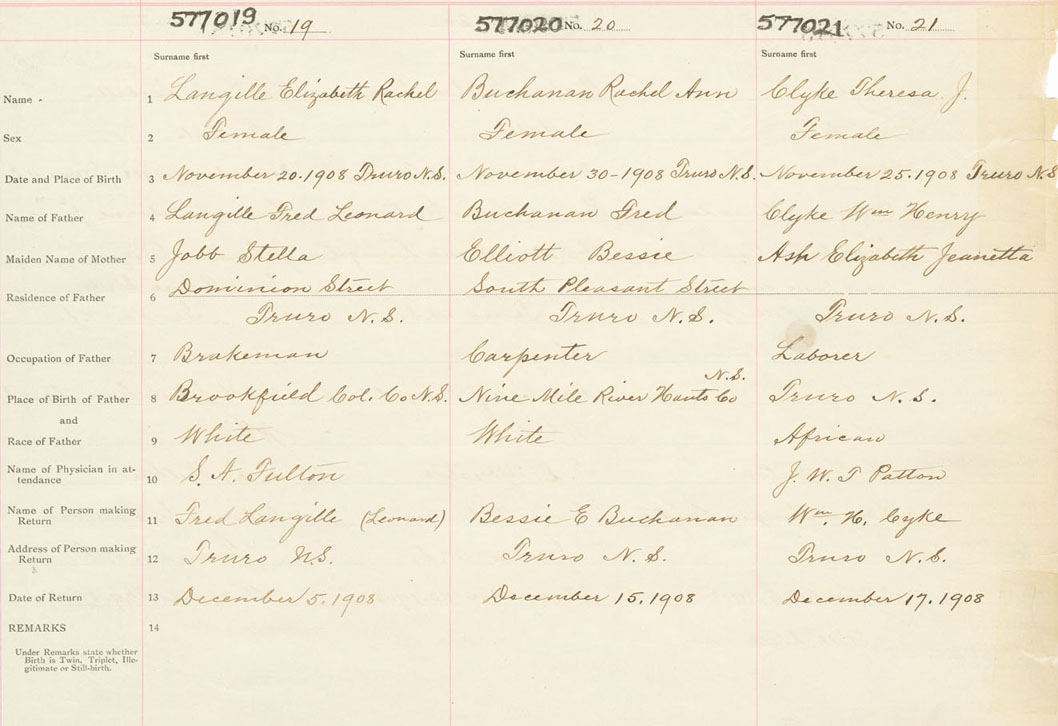 577019 No. 19 577020 No. 20 577021 No. 21
Surname first Surname first Surname first
Name - 1 Langille Elizabeth Rachel Buchanan Rachel Ann Clyke Theresa. J.
Sex 2 Female Female Female
Date and Place of Birth 3 November 20. 1908 Truro N.S. November 30 - 1908 Truro N.S. November 25. 1908 Truro N.S
Name of Father 4 Langille Fred Leonard Buchanan Fred Clyke Wm Henry
Maiden Name of Mother 5 Jobb Stella Elliott Bessie Ash Elizabeth Jeanetta
Residence of Father 6 Dominion Street South Pleasant Street
Truro N.S. Truro N.S. Truro N.S.
Occupation of Father 7 Brakeman Carpenter Laborer
N.S.
Place of Birth of Father 8 Brookfield Col. Co N.S. Nine Mile River Hants Co Truro N.S.
and
Race of Father 9 White White African
Name of Physician in at-
tendance 10 S. A. Fulton J. W. T Patton
Name of Person making
Return 11 Fred Langille (Leonard) Bessie E Buchanan Wm. H. Cyke
Address of Person making
Return 12 Truro N.S. Truro N.S. Truro N.S.
Date of Return 13 December 5. 1908 December 15. 1908 December 17. 1908
REMARKS 14
Under Remarks state whether
Birth is Twin. Triplet, Ille-
gitimate or Still-birth.